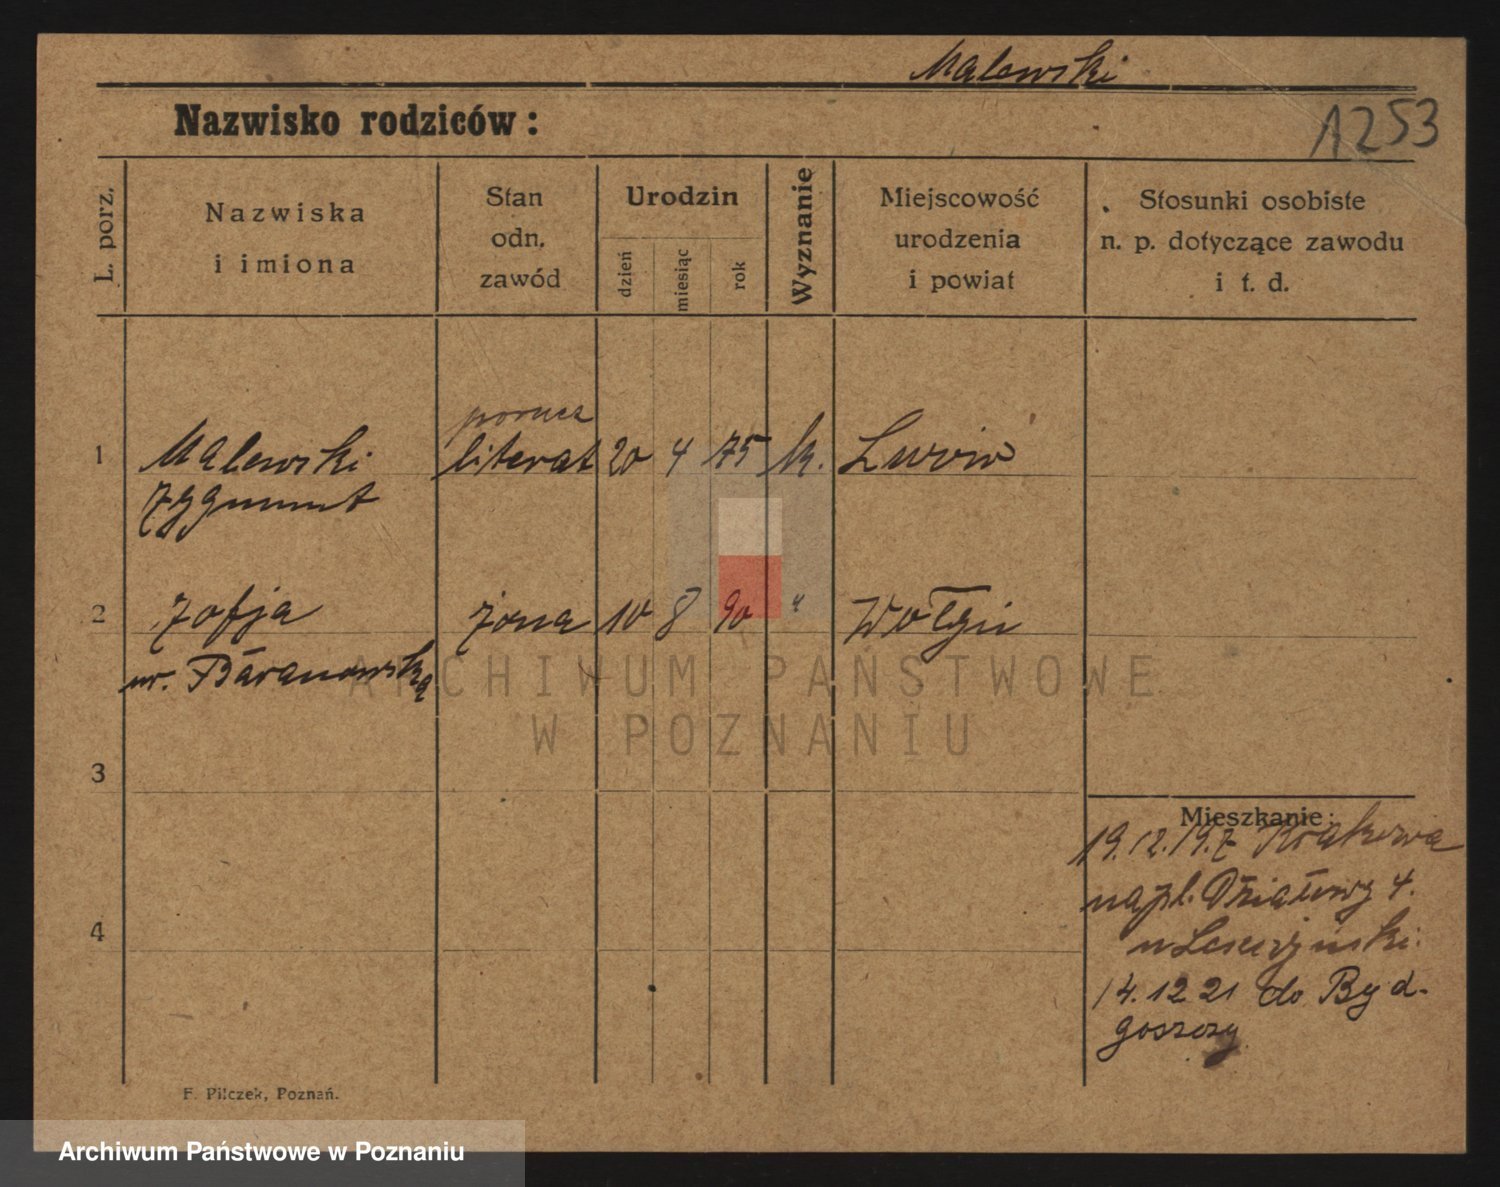 Malewski
Nazwisko rodziców:
1253
L. porz.
Nazwiska
i imiona
Stan
odn.
zawód
Urodzin
dzień
miesiąc
rok
Wyznanie
Miejscowość
urodzenia
i powiat
Stosunki osobiste
n. p. dotyczące zawodu
i t. d.
porucz
1 Malewski literat 20 4 75 k. Lwów
Zygmunt
2 Zofja żona 10 8 90 "
ur. Baranowska
ARCHIWUM PAŃSTWOWE
W POZNANIU
3
Mieszkanie:
19.12.19. z Krakowa
na pl. Działowy 4.
14.12 21 do Byd-
goszczy
4
F. Pilczek, Poznań.
Archiwum Państwowe w Poznaniu